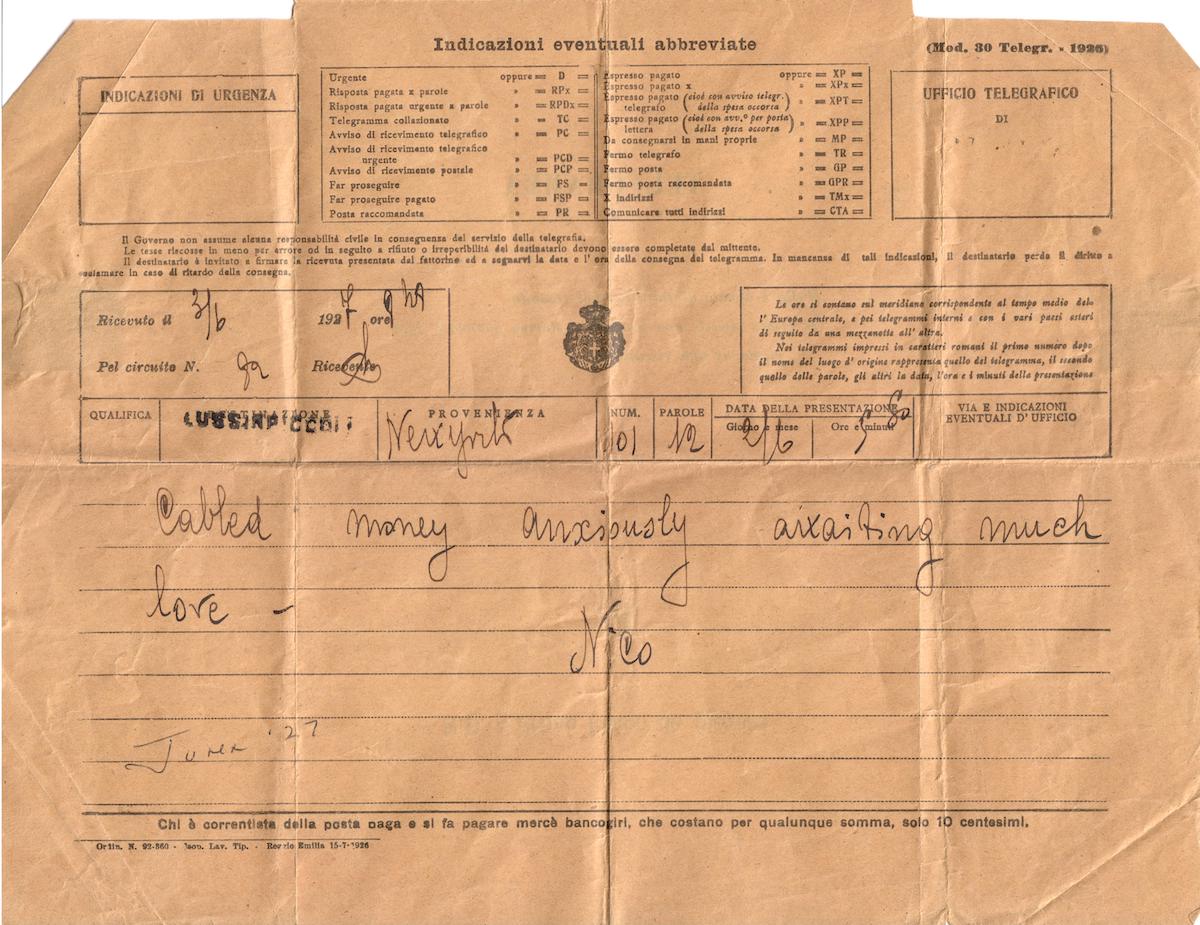 Indicazioni eventuali abbreviate
(Mod. 30 Telegr. - 1926)
INDICAZIONI DI URGENZA
Urgente oppure = D =
Risposta pagata x parole » = RPx =
Risposta pagata urgente x parole » = RPDx =
Telegramma collazionato » = TC =
Avviso di ricevimento telegrafico » = PC =
Avviso di ricevimento telegrafico
urgente » = PCD =
Avviso di ricevimento postale » = PCP =
Far proseguire » = FS =
Far proseguire pagato » = FSP =
Posta raccomandata » = PR =
Espresso pagato oppure = XP =
Espresso pagato x » = XPx =
Espresso pagato (cioè con avviso telegr.
telegrafo della spesa occorsa) » = XPT =
Espresso pagato (cioè con avv.º per posta
lettera della spesa occorsa) » = XPP =
Da consegnarsi in mani proprie » = MP =
Fermo telegrafo » = TR =
Fermo posta » = GP =
Fermo posta raccomandata » = GPR =
X indirizzi » = TMx =
Comunicare tutti indirizzi » = CTA =
UFFICIO TELEGRAFICO
DI
Il Governo non assume alcuna responsabilità civile in conseguenza del servizio della telegrafia.
Le tasse riscosse in meno per errore od in seguito a rifiuto o irreperibilità del destinatario devono essere completate dal mittente.
Il destinatario è invitato a firmare la ricevuta presentata dal fattorino ed a segnarvi la data e l'ora della consegna del telegramma. In mancanza di tali indicazioni, il destinatario perde il diritto a
reclamare in caso di ritardo della consegna.
Ricevuto il 3/6 1927 ore 9
Pel circuito N. Ricevente
Le ore si contano sul meridiano corrispondente al tempo medio dell'
l'Europa centrale, e pei telegrammi interni e con i vari paesi esteri
di seguito da una mezzanotte all'altra.
Nei telegrammi impressi in caratteri romani il primo numero dopo
il nome del luogo d'origine rappresenta quello del telegramma, il secondo
quello delle parole, gli altri la data, l'ora e i minuti della presentazione
QUALIFICA DESTINAZIONE PROVENIENZA NUM. PAROLE DATA DELLA PRESENTAZIONE VIA E INDICAZIONI
Giorno e mese Ore e minuti EVENTUALI D'UFFICIO
LUSSINPICCOLO Newyork 01 12 2/6 5 50
Cabled money anxiously awaiting much
love -
Nico
June '27
Chi è correntista della posta paga e si fa pagare mercè bancogiri, che costano per qualunque somma, solo 10 centesimi.
Ordin. N. 92-360 - Lav. Tip. - Reggio Emilia 15-7-1926